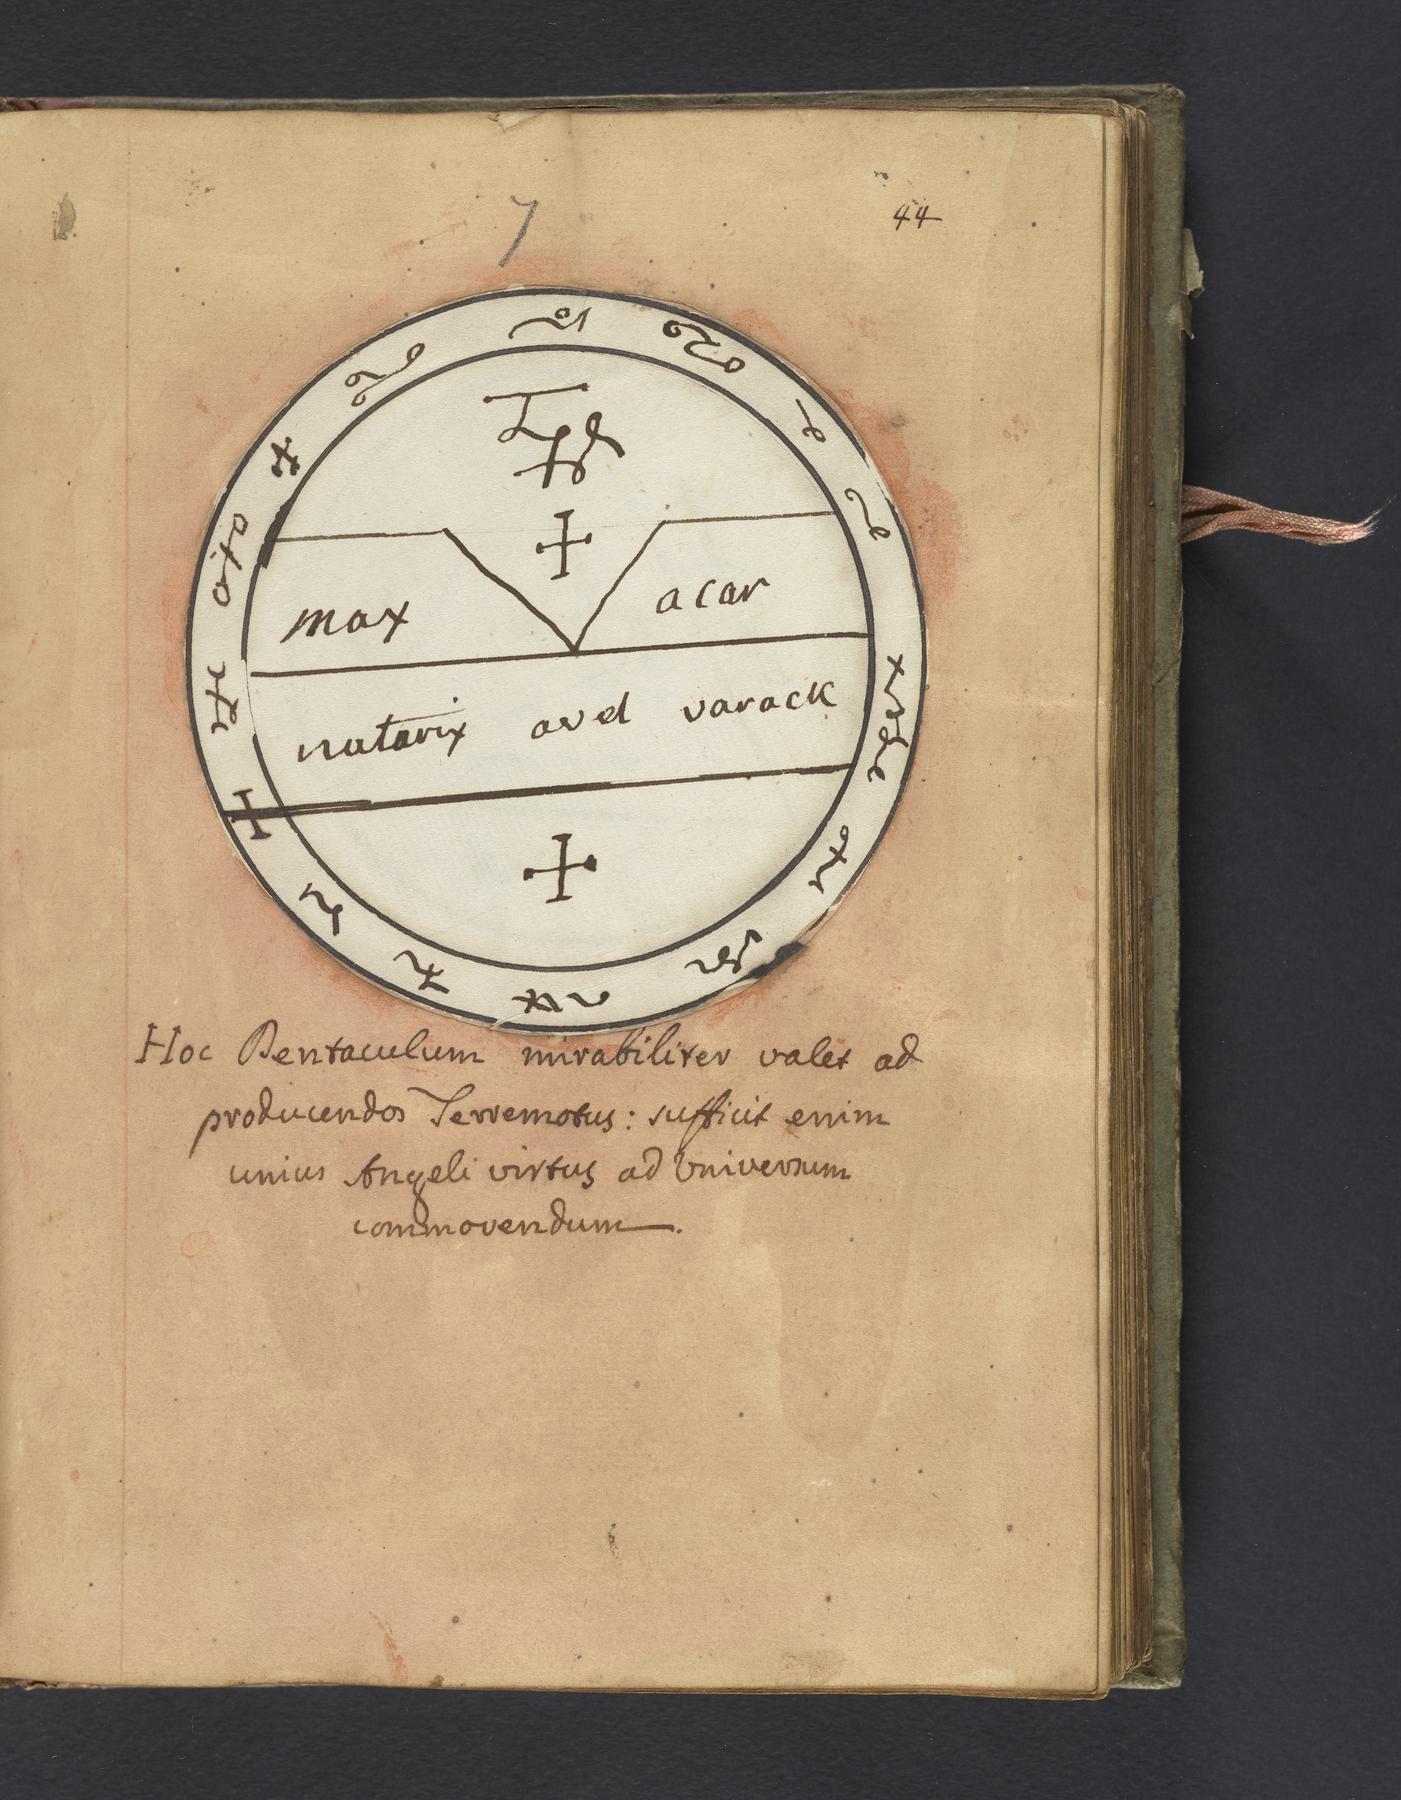 7
44
max
acar
nutarix avel varack
Hoc Pentaculum mirabiliter valet ad
producendos Terremotus: sufficit enim
unius Angeli virtus ad Universum
commovendum.